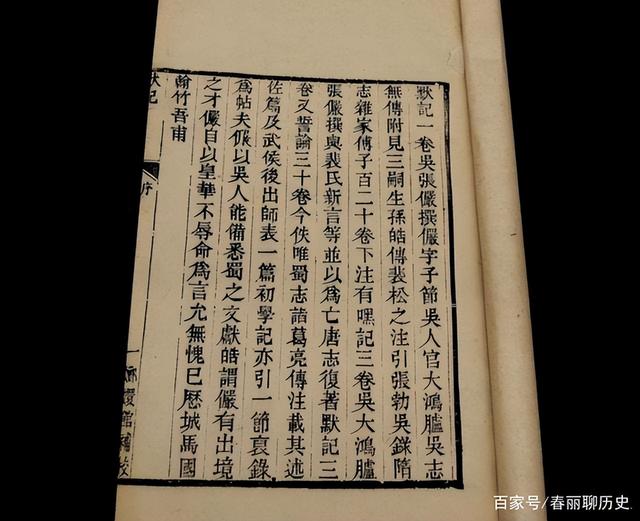 默記一卷吳張儼撰儼字子節吳人官大鴻臚吳志
無傳附見三嗣主孫皓傳裴松之注引張勃吳錄隋
志雜家傅子百二十卷下注有嘿記三卷吳大鴻臚
張儼撰與裴氏新言等並以為亡唐志復著默記三
卷又誓論三十卷今佚唯蜀志諸葛亮傳注載其述
佐篇及武侯後出師表一篇初學記亦引一節裒錄
為帖夫儼以吳人能備悉蜀之文獻皓謂儼有出境
之才儼自以皇華不辱命為言允無愧已歷城馬國
翰竹吾甫
默記
序
一
嬛館補校
百家号/春丽聊历史